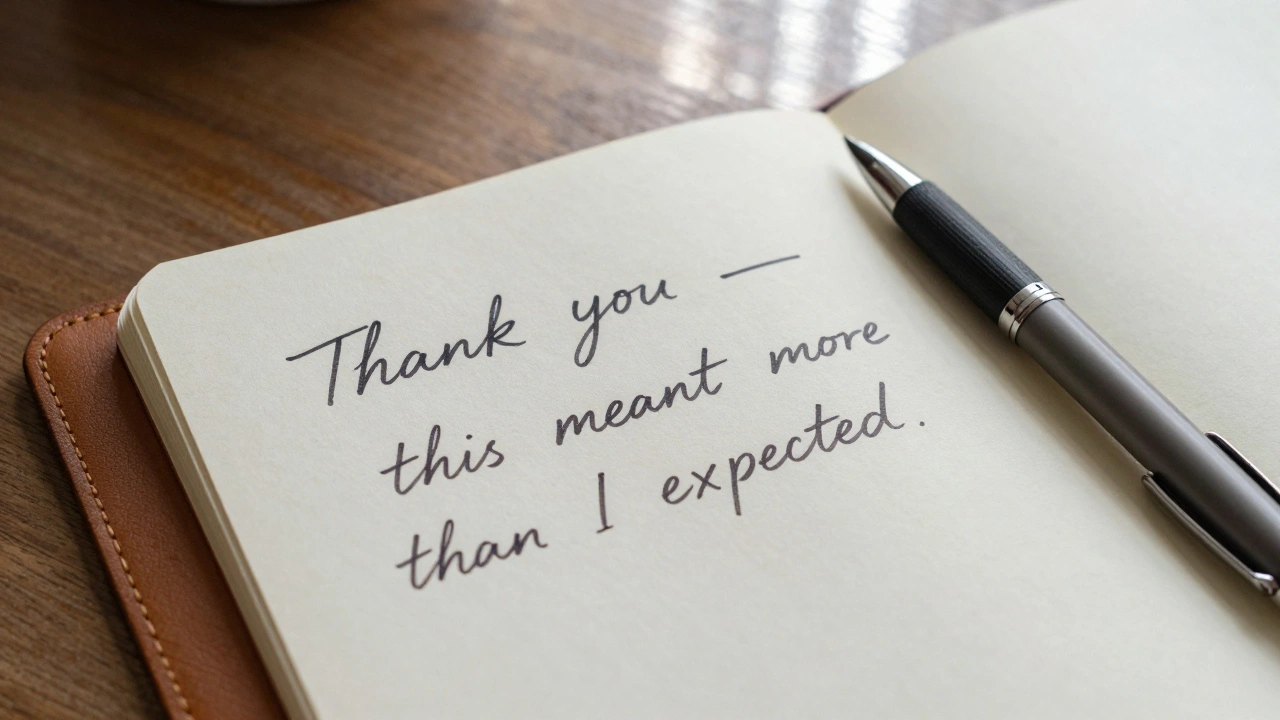 Thank you —
this meant more
than I expected.